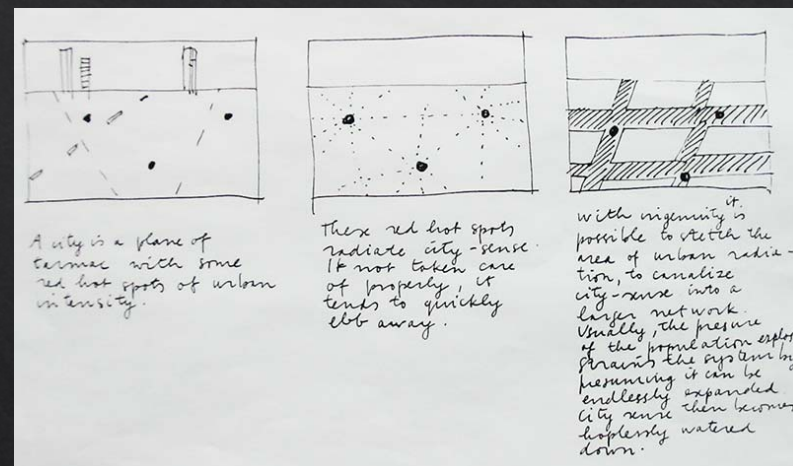 A city is a plane of
tarmac with some
red hot spots of urban
intensity.
These red hot spots
radiate city-sense.
If not taken care
of properly, it
tends to quickly
ebb away.
With ingenuity it is
possible to stretch the
area of urban radia-
tion, to canalize
city-sense into a
larger network.
Usually, the presure
of the population explos
strains the system by
presuming it can be
endlessly expanded.
City sense then becomes
hoplessly watered
down.